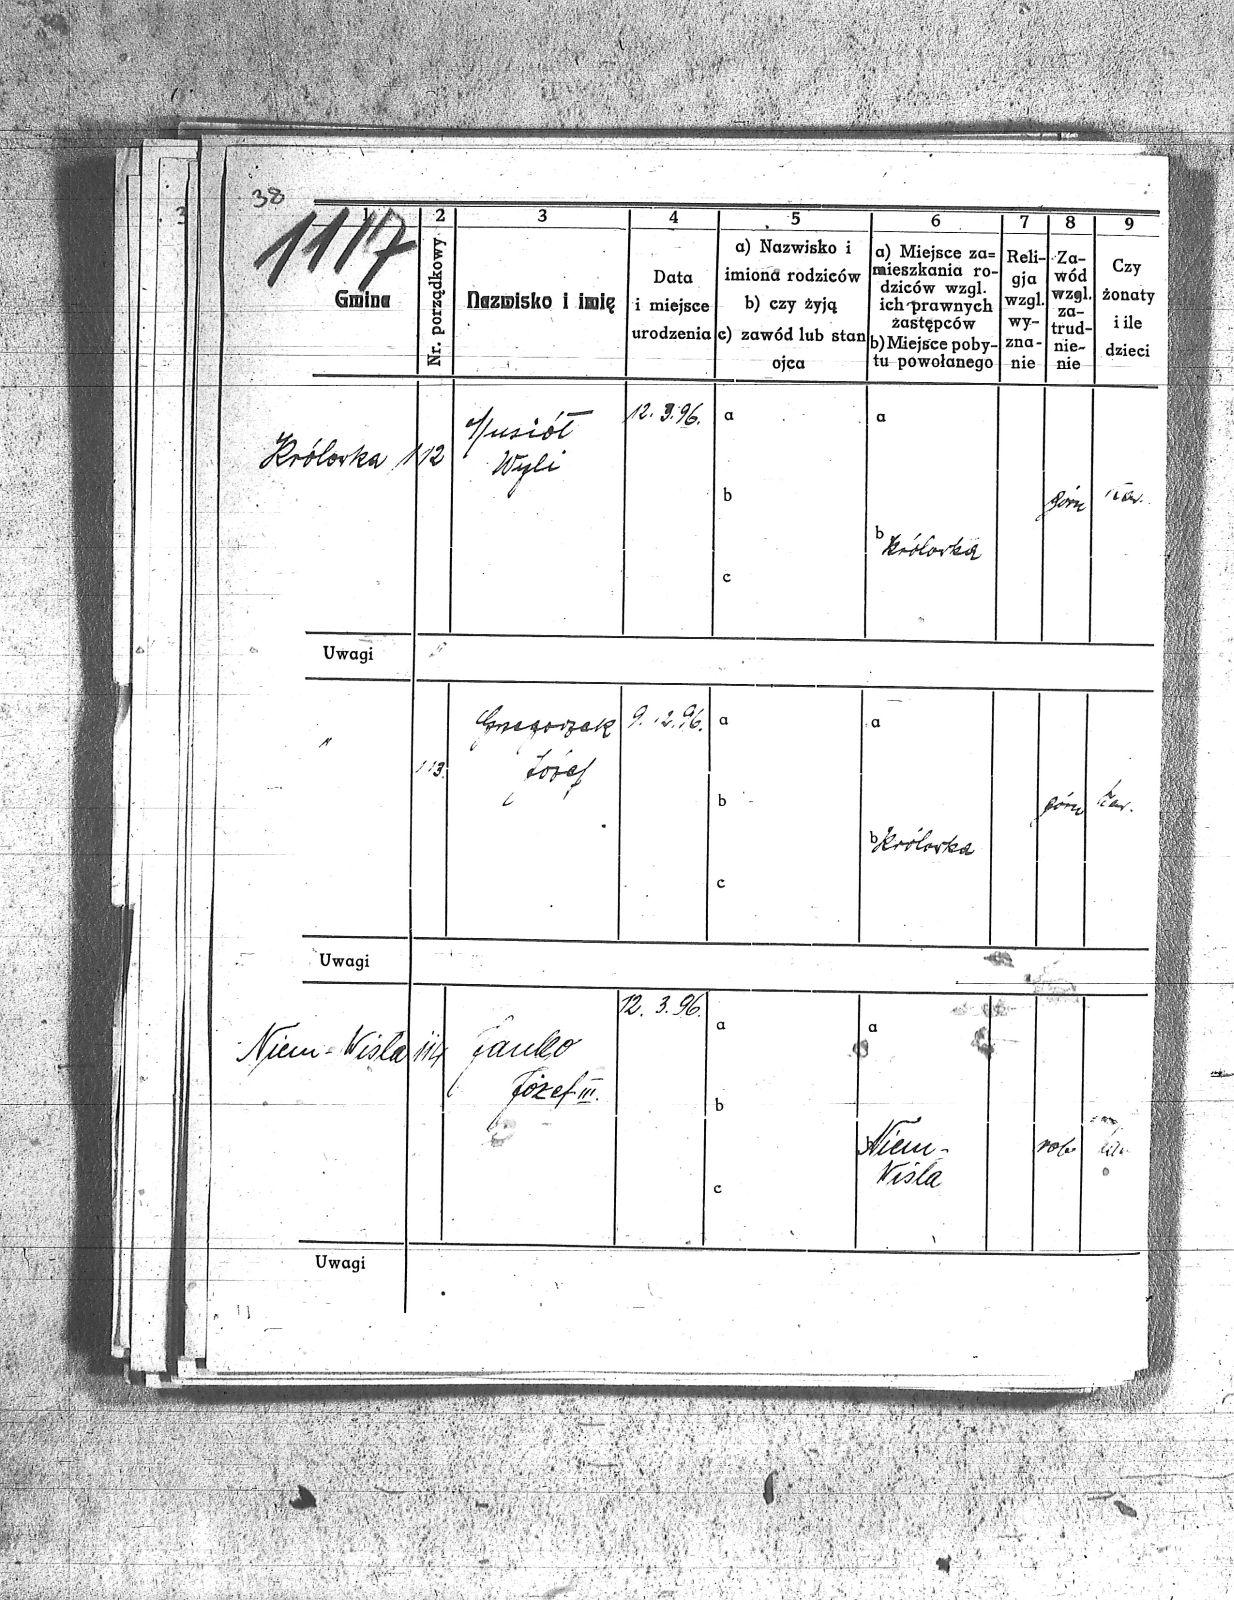 38
1117
1 2 3 4 5 6 7 8 9
Gmina
Nr. porządkowy
Nazwisko i imię
Data
i miejsce
urodzenia
a) Nazwisko i
imiona rodziców
b) czy żyją
c) zawód lub stan
ojca
a) Miejsce za=
mieszkania ro-
dziców wzgl.
ich prawnych
zastępców
b) Miejsce poby-
tu powołanego
Reli-
gja
wzgl.
wy-
zna-
nie
Za-
wód
wzgl.
za-
trud-
nie-
nie
Czy
żonaty
i ile
dzieci
Królowka 112 Musiół 12. 3. 96. a a
Wyli
b górn kaw.
b Królowka
c
Uwagi
" Gregorzak 9. 12. 96. a a
113 Józef
b górn kaw.
b Królowka
c
Uwagi
12. 3. 96.
Niem-Wisła 114 Janko a a
Józef III.
b
Niem- rob
Wisła
c
Uwagi